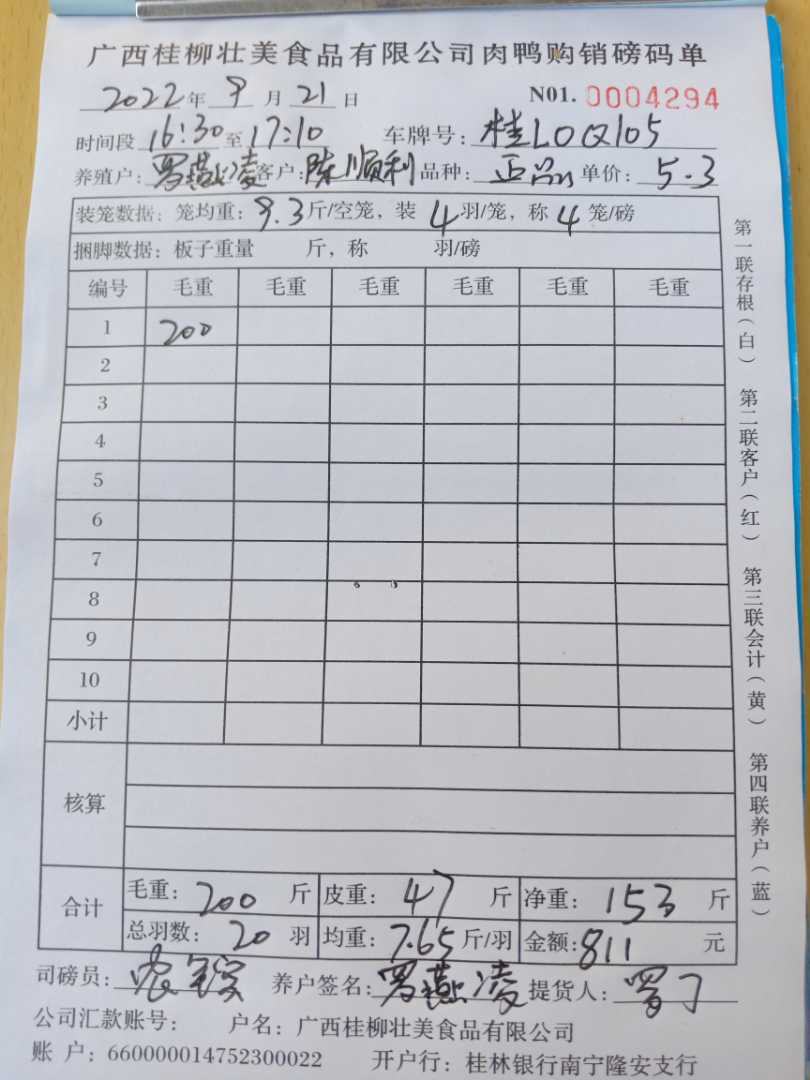 广西桂柳壮美食品有限公司肉鸭购销磅码单
2022年9月21日 N01.0004294
时间段16:30至17:10 车牌号:桂L0Q105
养殖户:罗燕凌客户:陈顺利品种:正品单价:5.3
装笼数据:笼均重:9.3斤/空笼,装4羽/笼,称4笼/磅
捆脚数据:板子重量 斤,称 羽/磅
编号 毛重 毛重 毛重 毛重 毛重 毛重
1 200
2
3
4
5
6
7
8
9
10
小计
核算
合计 毛重:200斤 皮重:47斤 净重:153斤
总羽数:20羽 均重:7.65斤/羽 金额:811元
司磅员: 养户签名:罗燕凌 提货人:
公司汇款账号: 户名:广西桂柳壮美食品有限公司
账 户:660000014752300022 开户行:桂林银行南宁隆安支行
第一联存根(白) 第二联客户(红) 第三联会计(黄) 第四联养户(蓝)